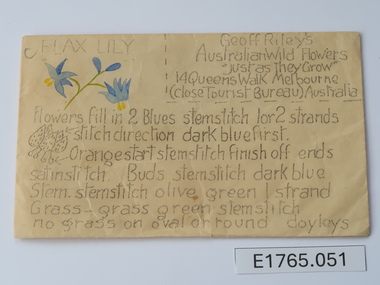 FLAX LILY
Geoff Riley's
Australian Wild Flowers
"Just as They Grow"
14 Queens Walk Melbourne
(Close Tourist Bureau) Australia
Flowers fill in 2 Blues stemstitch 1 or 2 strands
stitch direction dark blue first.
Orange start stemstitch finish off ends
satin stitch. Buds stemstitch dark blue
Stem. stemstitch olive green 1 strand
Grass - grass green stemstitch
no grass on oval or round doyleys
E1765.051